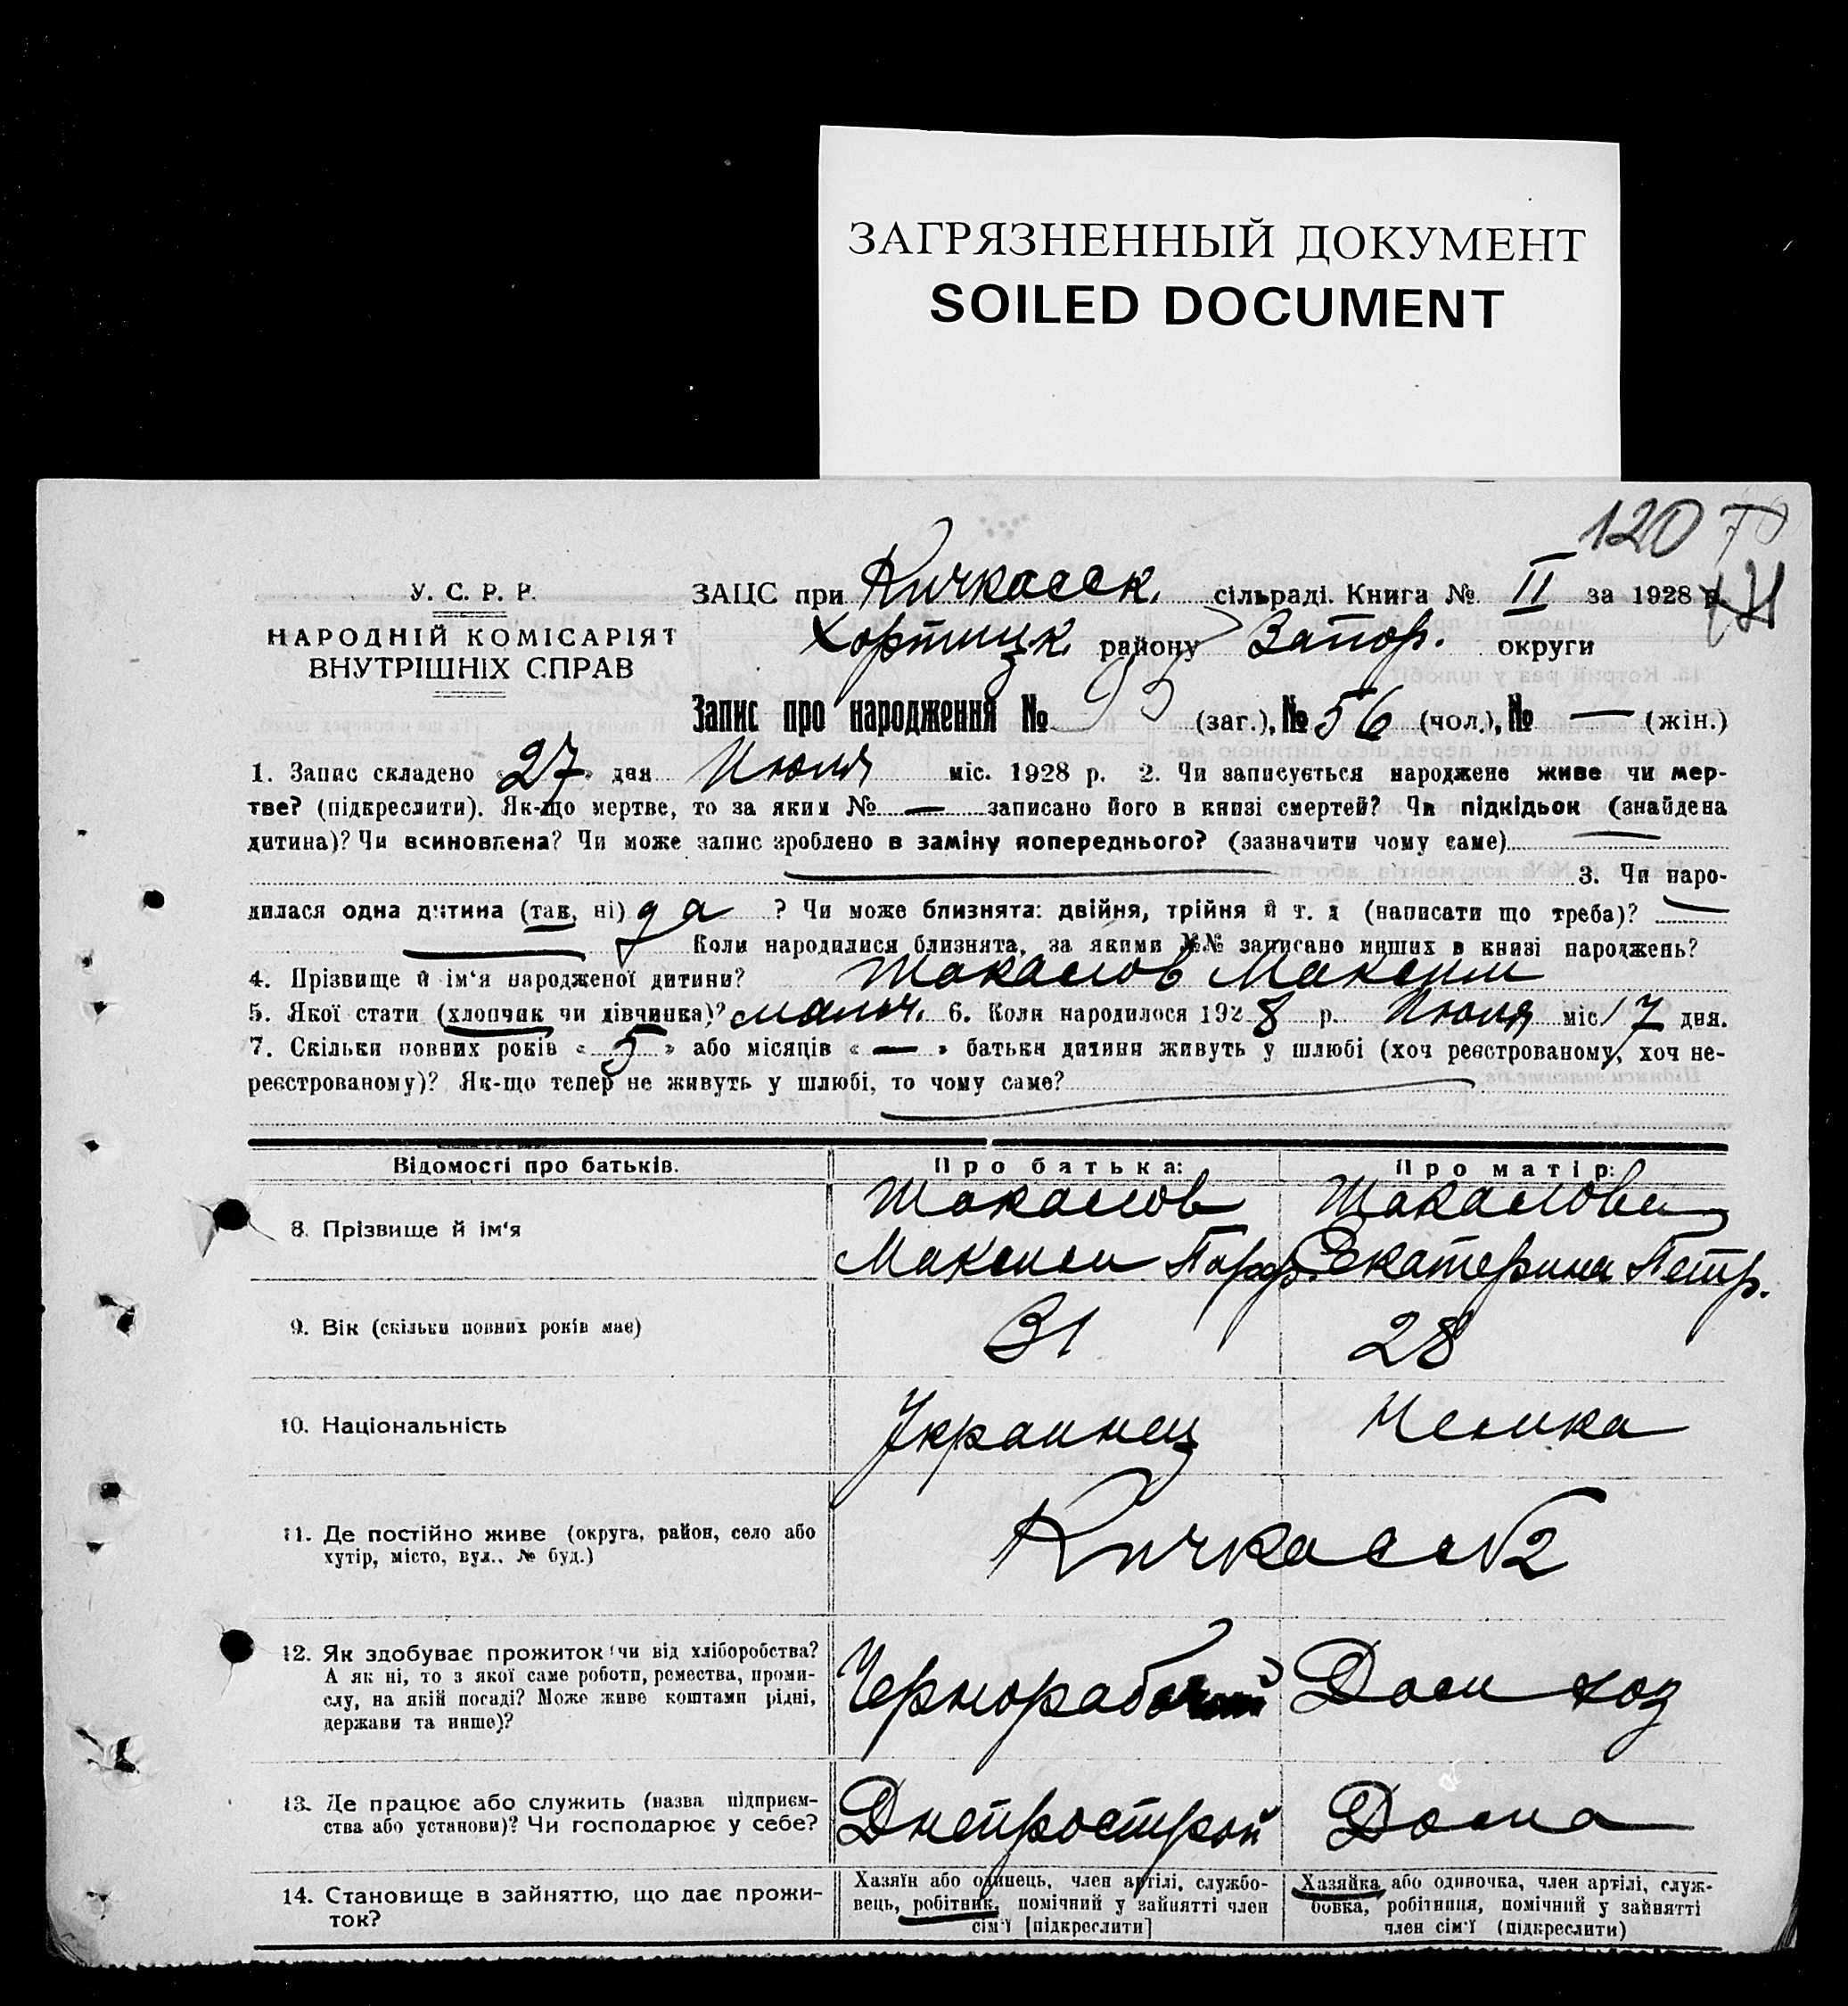 ЗАГРЯЗНЕННЫЙ ДОКУМЕНТ
SOILED DOCUMENT
120
У. С. Р. Р.
НАРОДНІЙ КОМІСАРІЯТ
ВНУТРІШНІХ СПРАВ
ЗАЦС при Кичкасск. сільраді. Книга № II за 1928 р.
Хортицк. району Запор. округи
Запис про народження № 95 (заг.), № 56 (чол.), № — (жін.)
1. Запис складено «27» дня Июля міс. 1928 р. 2. Чи записується народжене живе чи мер-
тве? (підкреслити). Як-що мертве, то за яким № — записано його в книзі смертей? Чи підкідьок (знайдена
дитина)? Чи всиновлена? Чи може запис зроблено в заміну попереднього? (зазначити чому саме)
3. Чи наро-
дилася одна дитина (так, ні) да ? Чи може близнята: двійня, трійня й т. д (написати що треба)?
Коли народилися близнята, за якими №№ записано инших в книзі народжень?
4. Прізвище й ім'я народженої дитини? Шокалов Максим
5. Якої стати (хлопчик чи дівчинка)? мальч. 6. Коли народилося 1928 р. Июля міс 17 дня.
7. Скільки повних років «5» або місяців «—» батьки дитини живуть у шлюбі (хоч реєстрованому, хоч не-
реєстрованому)? Як-що тепер не живуть у шлюбі, то чому саме?
Відомості про батьків. Про батька: Про матір:
8. Прізвище й ім'я
Максим Порф. Екатерина Петр.
9. Вік (скільки повних років має) 31 28
10. Національність Украинец Немка
11. Де постійно живе (округа, район, село або
хутір, місто, вул., № буд.) Кичкасс №2
12. Як здобуває прожиток (чи від хліборобства?
А як ні, то з якої саме роботи, ремества, проми-
слу, на якій посаді? Може живе коштами рідні,
держави та инше)? Чернорабочий Дом хоз
13. Де працює або служить (назва підприєм-
ства або установи)? Чи господарює у себе? Днепрострой Дома
14. Становище в зайняттю, що дає прожи-
ток?
Хазяїн або одинець, член артілі, службо-
вець, робітник, помічний у зайнятті член
сім'ї [підкреслити]
Хазяйка або одиночка, член артілі, служ-
бовка, робітниця, помічний у зайнятті
член сім'ї (підкреслити)